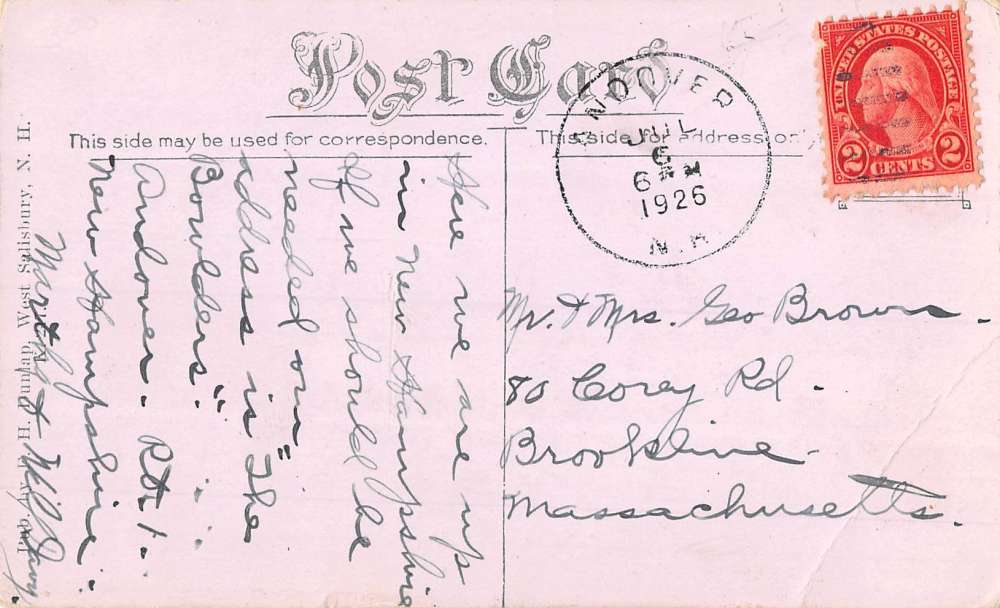 Post Card
This side may be used for correspondence.
This side for address only
ANDOVER
JUL
6
6 PM
1926
N.H.
UNITED STATES POSTAGE
2 CENTS 2
Here we are up
in New Hampshire
If we should be
needed our
address is "The
Bowlders"
Andover. Rt. 1.
New Hampshire.
& Will
Mr. & Mrs. Geo Brown.
80 Corey Rd.
Brookline
Massachusetts.
Pub. by H. Dunlap, West Salisbury, N. H.